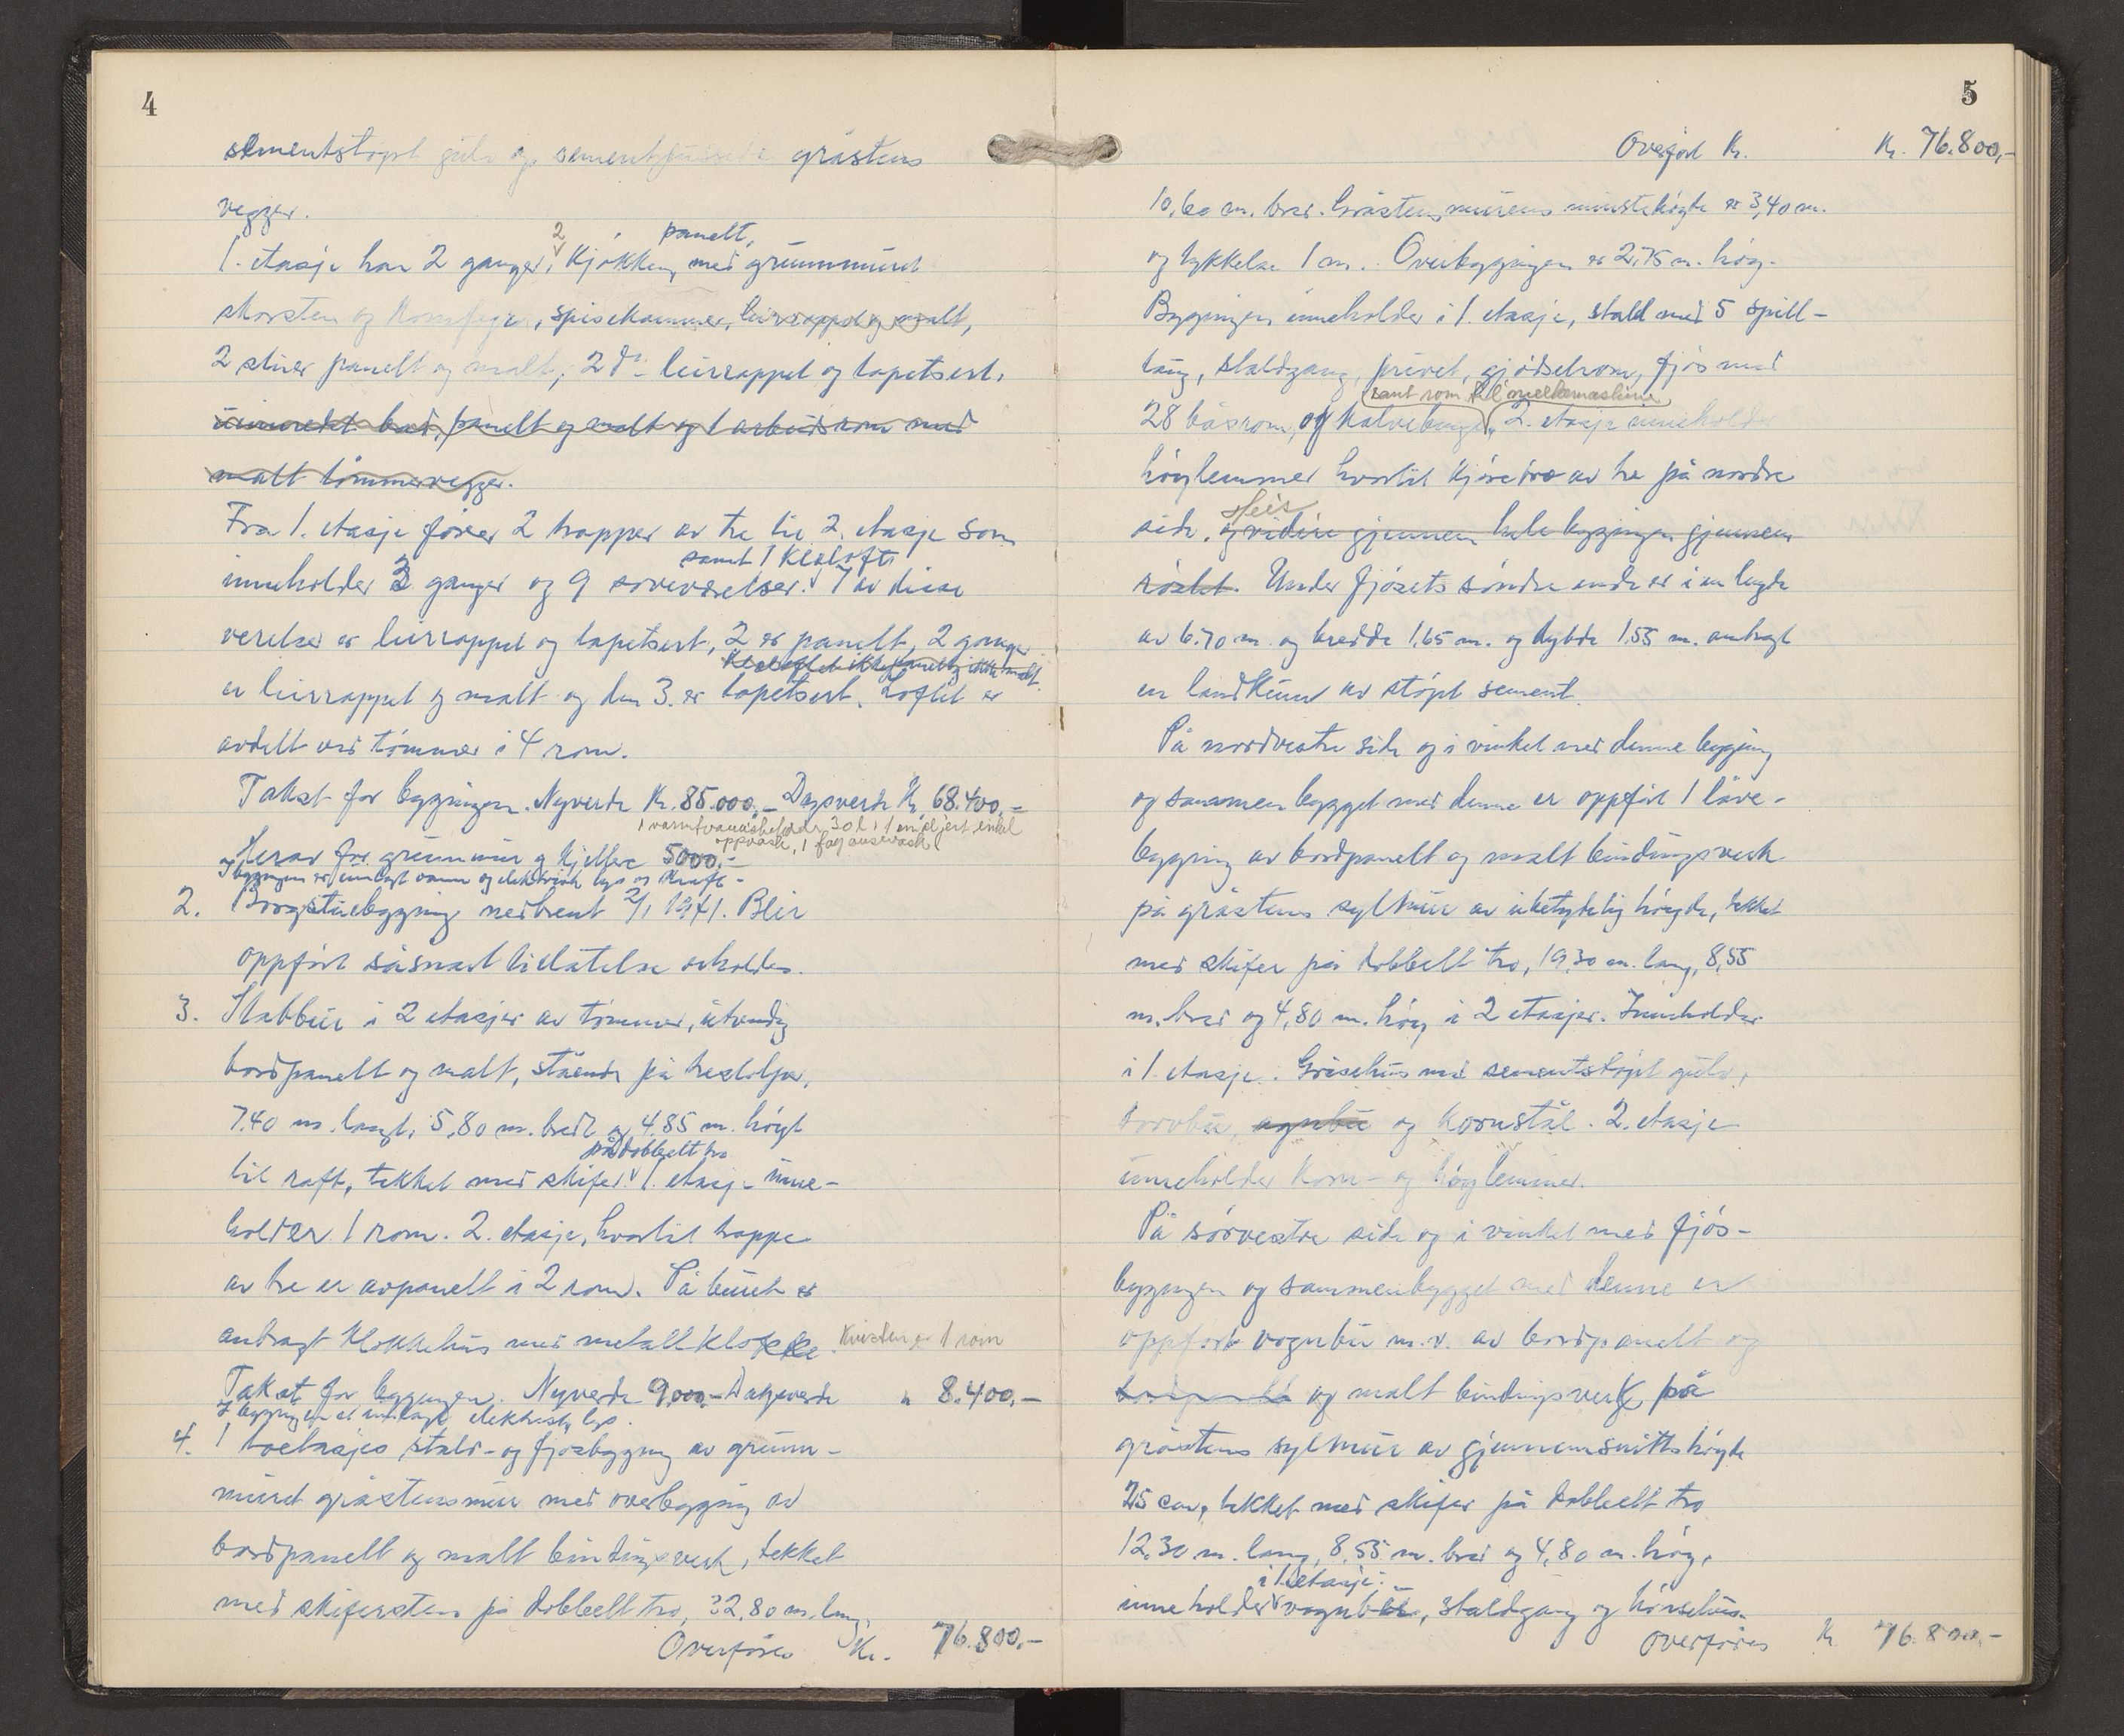 4
sementstøpt gulv og sementpussede gråstens
vegger.
1. etasje har 2 ganger, 2 kjøkken, panelt, med grunnmuret
skorsten og komfyr, spisekammer, leirrappet og malt,
2 stuer panelt og malt, 2 do leirrappet og tapetsert,
innredet bad, panelt og malt og 1 arbeidsrom med
malt tømmervegger.
Fra 1. etasje fører 2 trapper av tre til 2. etasje som
inneholder 3 ganger og 9 soveværelser. samt 1 klesloft. 7 av disse
verelser er leirrappet og tapetsert, 2 er panelt, 2 ganger
Kleskottet ikke panelt og ikke malt.
er leirrappet og malt og den 3. er tapetsert. Loftet er
avdelt ved tømmer i 4 rom.
Takst for bygningen. Nyverdi Kr. 85.000,- Dagsverdi Kr. 68.400,-
1 varmtvannsbeholder 30 l, 1 emaljert enkel
oppvask, 1 fag
Herav for grunnmur og kjeller 5000,-
I bygningen er innlagt vann og elektrisk lys og kraft.
2. Borgstuebygning nedbrent 2/1 1941. Blir
oppført såsnart tillatelse erholdes.
3. Stabbur i 2 etasjer av tømmer, utvendig
bordpanelt og malt, stående på trestolper,
7.40 m. langt, 5,80 m. bredt og 4.85 m. høyt
til raft, tekket med skifer på dobbelt tro. 1. etasje inne-
holder 1 rom. 2. etasje, hvortil trappe
av tre er avpanelt i 2 rom. På buret er
anbragt klokkehus med metallklokke. Kvisten er 1 rom
Takst for bygningen. Nyverdi 9,000,- Dagsverdi " 8.400,-
I bygningen er innlagt elektrisk lys.
4. 1 toetasjes stald- og fjøsbygning av grunn-
muret gråstensmur med overbygning av
bordpanelt og malt bindingsverk, tekket
med skifersten på dobbelt tro, 32,80 m. lang,
Overføres Kr. 76.800,-
5
Overført Kr. Kr. 76.800,-
10,60 m. bred. Gråstensmurens minstehøyde er 3,40 m.
og tykkelse 1 m. Overbygningen er 2,75 m. høy.
Bygningen inneholder i 1. etasje, stald med 5 spill-
tau, staldgang, privet, gjødselrom, fjøs med
samt rom til melkemaskine
28 båsrom, og kalvebinge, 2. etasje inneholder
høylemmer hvortil kjørebro av tre på nordre
side. Heis og videre gjennem hele bygningen gjennem
røstet. Under fjøsets søndre ende er i en lengde
av 6.70 m. og bredde 1,65 m. og dybde 1.55 m. anbragt
en landkum av støpt sement.
På nordvestre side og i vinkel med denne bygning
og sammenbygget med denne er oppført 1 låve-
bygning av bordpanelt og malt bindingsverk
på gråstens syllmur av ubetydelig høyde, tekket
med skifer på dobbelt tro, 19,30 m. lang, 8,55
m. bred og 4,80 m. høy i 2 etasjer. Inneholder
i 1. etasje. Grisehus med sementstøpt gulv,
torvbu, agnbu og kornstål. 2. etasje
inneholder korn- og høylemmer.
På sørvestre side og i vinkel med fjøs-
bygningen og sammenbygget med denne er
oppført vognbu m.v. av bordpanelt og
bordpanelt og malt bindingsverk på
gråstens syllmur av gjennemsnittshøyde
25 cm, tekket med skifer på dobbelt tro
12,30 m. lang, 8,55 m. bred og 4,80 m. høy,
inneholder i 1. etasje: vognbu, staldgang og hønsehus.
Overføres Kr. 76.800,-